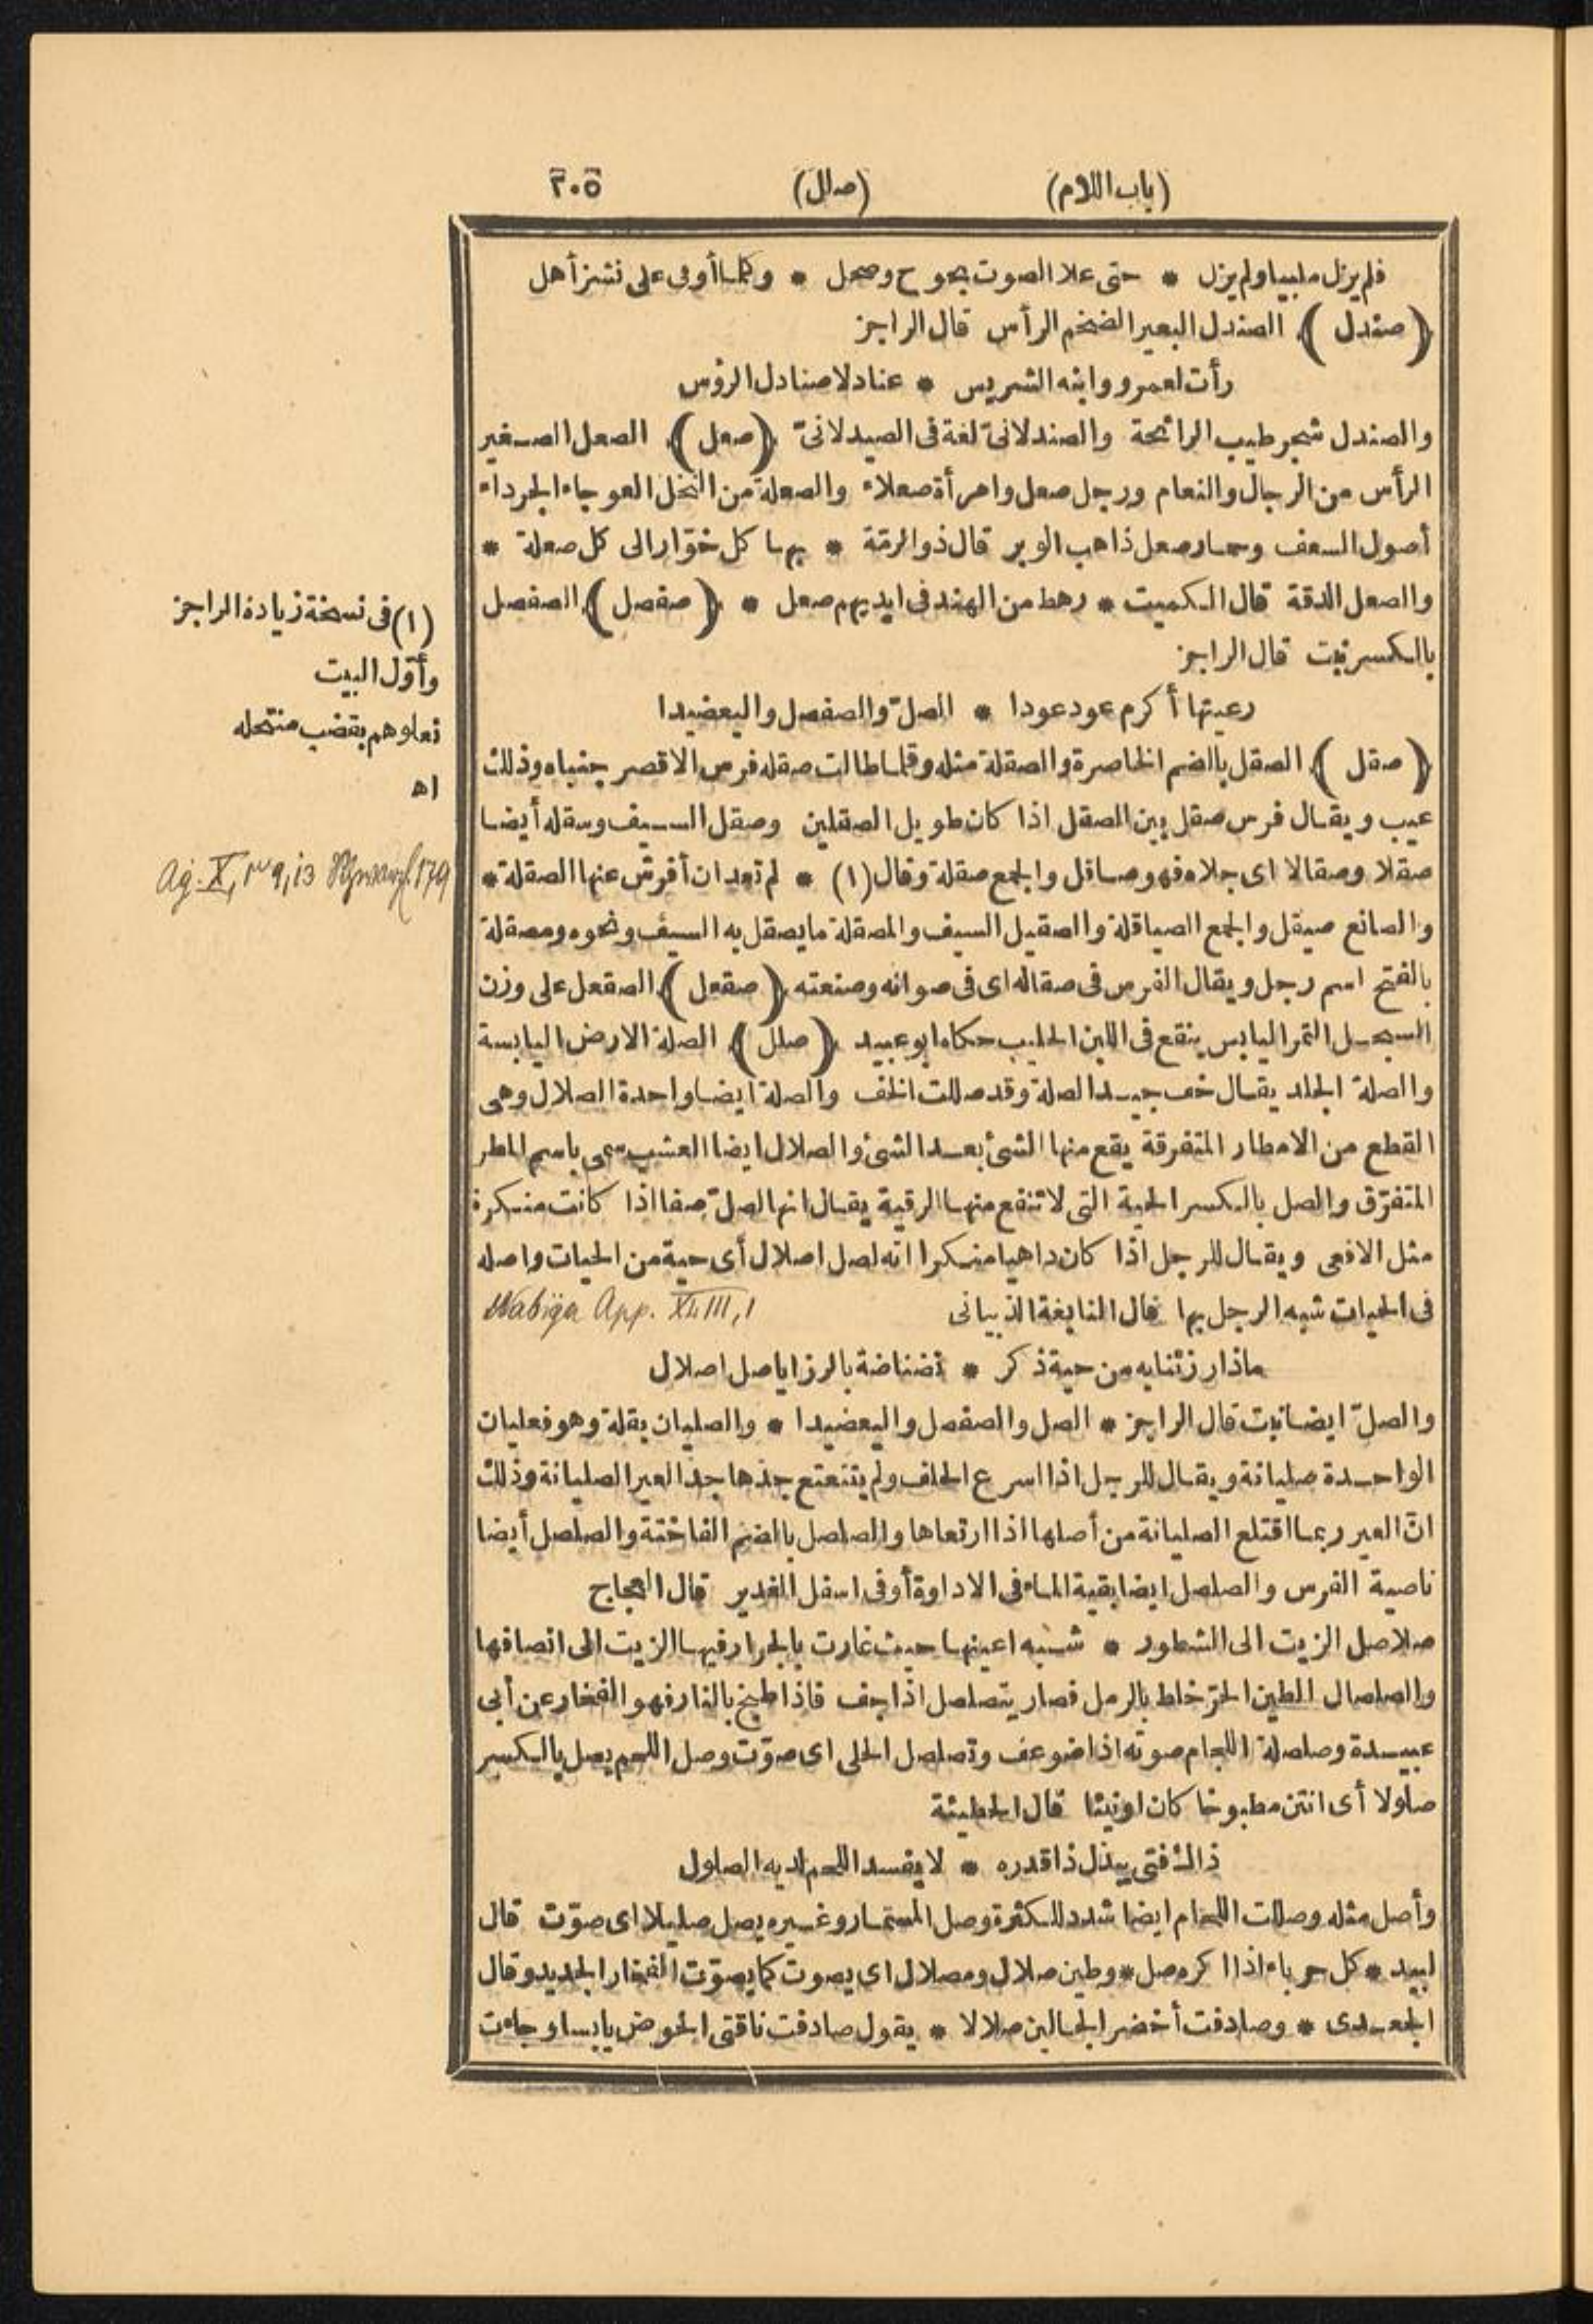 (باب اللام) (صلل) ٢٠٥
فلم يزل ملبيا ولم يزل * حتى علا الصوت بحوح وصحل * وكلما أوفى على نشز أهل
(صندل) الصندل البعير الضخم الرأس قال الراجز
رأت لعمرو وابنه الشريس * عنادلا صنادل الرؤس
والصندل شجر طيب الرائحة والصندلانىّ لغة فى الصيدلانىّ (صعل) الصعل الصغير
الرأس من الرجال والنعام ورجل صعل وامرأة صعلاء والصعلة من النخل العوجاء الجرداء
أصول السعف وحمار صعل ذاهب الوبر قال ذو الرمّة * بها كل خوّار الى كل صعلة *
والصعل الدقة قال الكميت * رهط من الهند فى ايديهم صعل * (صفصل) الصفصل
بالكسر نبت قال الراجز
رعيتها أكرم عود عودا * الصلّ والصفصل واليعضيدا
(صقل) الصقل بالضم الخاصرة والصقلة مثله وقلما طالت صقله فرس الا قصر جنباه وذلك
عيب ويقال فرس صقل بين الصقل اذا كان طويل الصقلين وصقل السيف وسقله أيضا
صقلا وصقالا اى جلاه فهو صاقل والجمع صقلة وقال (١) * لم تعد ان أفرش عنها الصقلة *
والصانع صيقل والجمع الصياقلة والصقيل السيف والمصقلة ما يصقل به السيف ونحوه ومصقلة
بالفتح اسم رجل ويقال الفرس فى صقاله اى فى صوانه وصنعته (صقعل) الصقعل على وزن
السبحل التمر اليابس ينقع فى اللبن الحليب حكاه ابو عبيد (صلل) الصلة الارض اليابسة
والصلة الجلد يقال خف جيد الصلة وقد صللت الخف والصلة ايضا واحدة الصلال وهى
القطع من الامطار المتفرقة يقع منها الشئ بعد الشئ والصلال ايضا العشب سمى باسم المطر
المتفرّق والصل بالكسر الحية التى لا تنفع منها الرقية يقال انها لصلّ صفا اذا كانت منكرة
مثل الافعى ويقال للرجل اذا كان داهيا منكرا انه لصل اصلال أى حية من الحيات واصله
فى الحيات شبه الرجل بها قال النابغة الذبيانى Nabiga App. XLIII, 1
ماذا رزئنا به من حية ذكر * نضناضة بالرزايا صل اصلال
والصلّ ايضا نبت قال الراجز * الصل والصفصل واليعضيدا * والصليان بقلة وهو فعليان
الواحدة صليانة ويقال للرجل اذا اسرع الحلف ولم يتتعتع جذها جذ العير الصليانة وذلك
انّ العير ربما اقتلع الصليانة من أصلها اذا ارتعاها والصلصل بالضم الفاختة والصلصل أيضا
ناصية الفرس والصلصل ايضا بقية الماء فى الاداوة أو فى اسفل الغدير قال العجاج
صلاصل الزيت الى الشطور * شبه اعينها حيث غارت بالجرار فيها الزيت الى انصافها
والصلصال الطين الحرّ خلط بالرمل فصار يتصلصل اذا جف فاذا طبخ بالنار فهو الفخار عن أبى
عبيدة وصلصلة اللجام صوته اذا ضوعف وتصلصل الحلى اى صوّت وصل اللحم يصل بالكسر
صلولا أى انتن مطبوخا كان او نيئا قال الحطيئة
ذاك فتى يبذل ذا قدره * لا يفسد اللحم لديه الصلول
وأصل مثله وصللت اللجام ايضا شدد للكثرة وصل المسمار وغيره يصل صليلا اى صوّت قال
لبيد * كل حرباء اذا اكره صل * وطين صلال ومصلال اى يصوت كما يصوّت الفخار الجديد وقال
الجعدى * وصادفت أخضر الجالين صلالا * يقول صادفت ناقتى الحوض يابسا وجاءت
(١) فى نسخة زيادة الراجز
وأوّل البيت
نعلوهم بقضب منتحله
اه
Ag. X, ١٣٩, 13 179